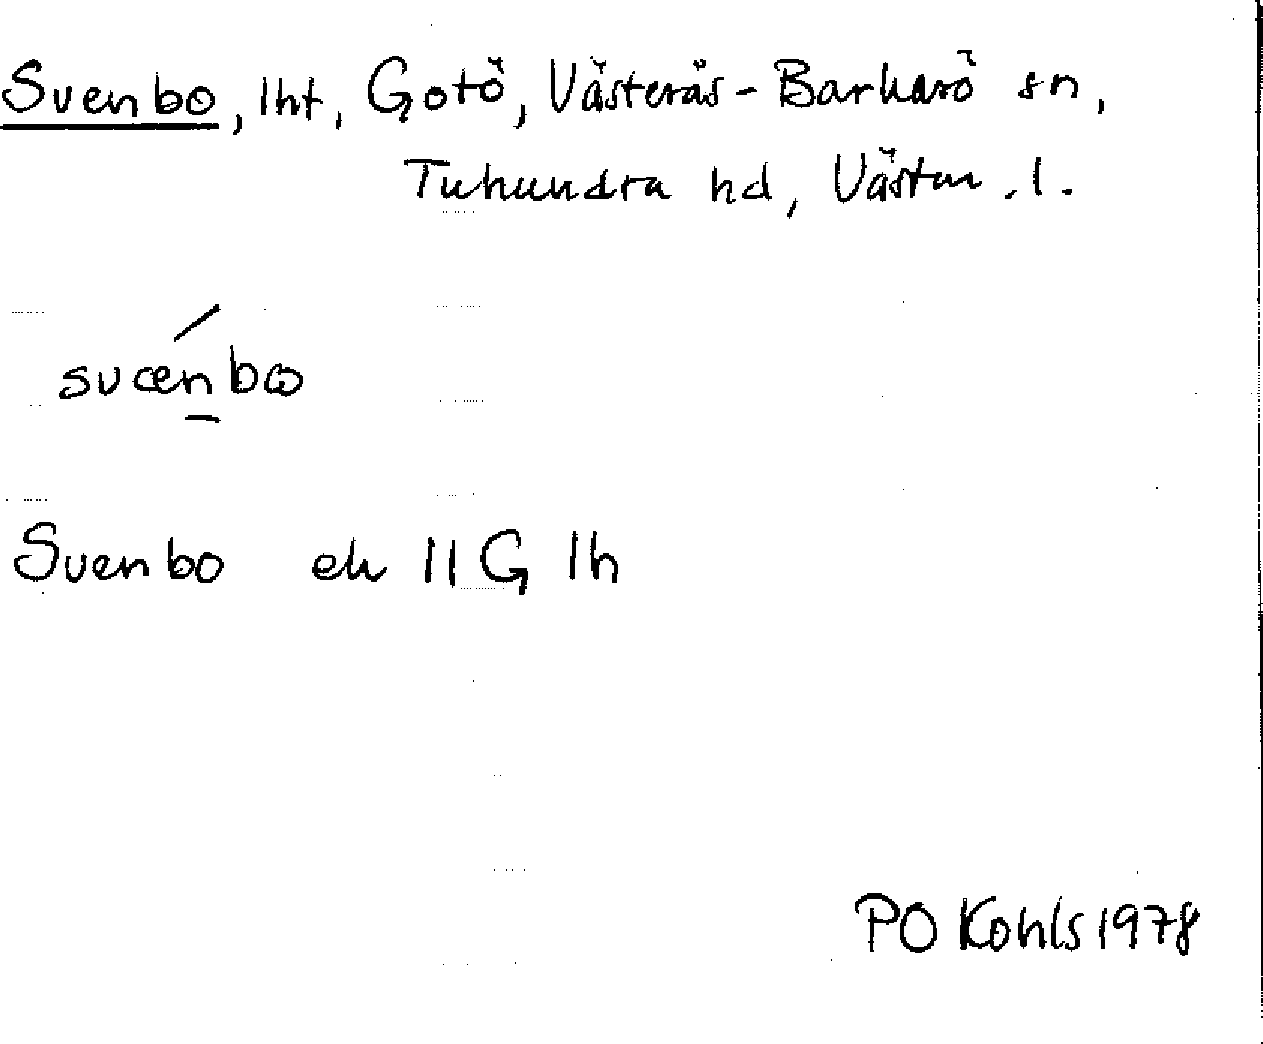 Svenbo, lht, Gotö, Västerås-Barkarö sn,
Tuhundra hd, Västm. l.
svænbω
Svenbo ek 11G 1h
PO Kohls 1978